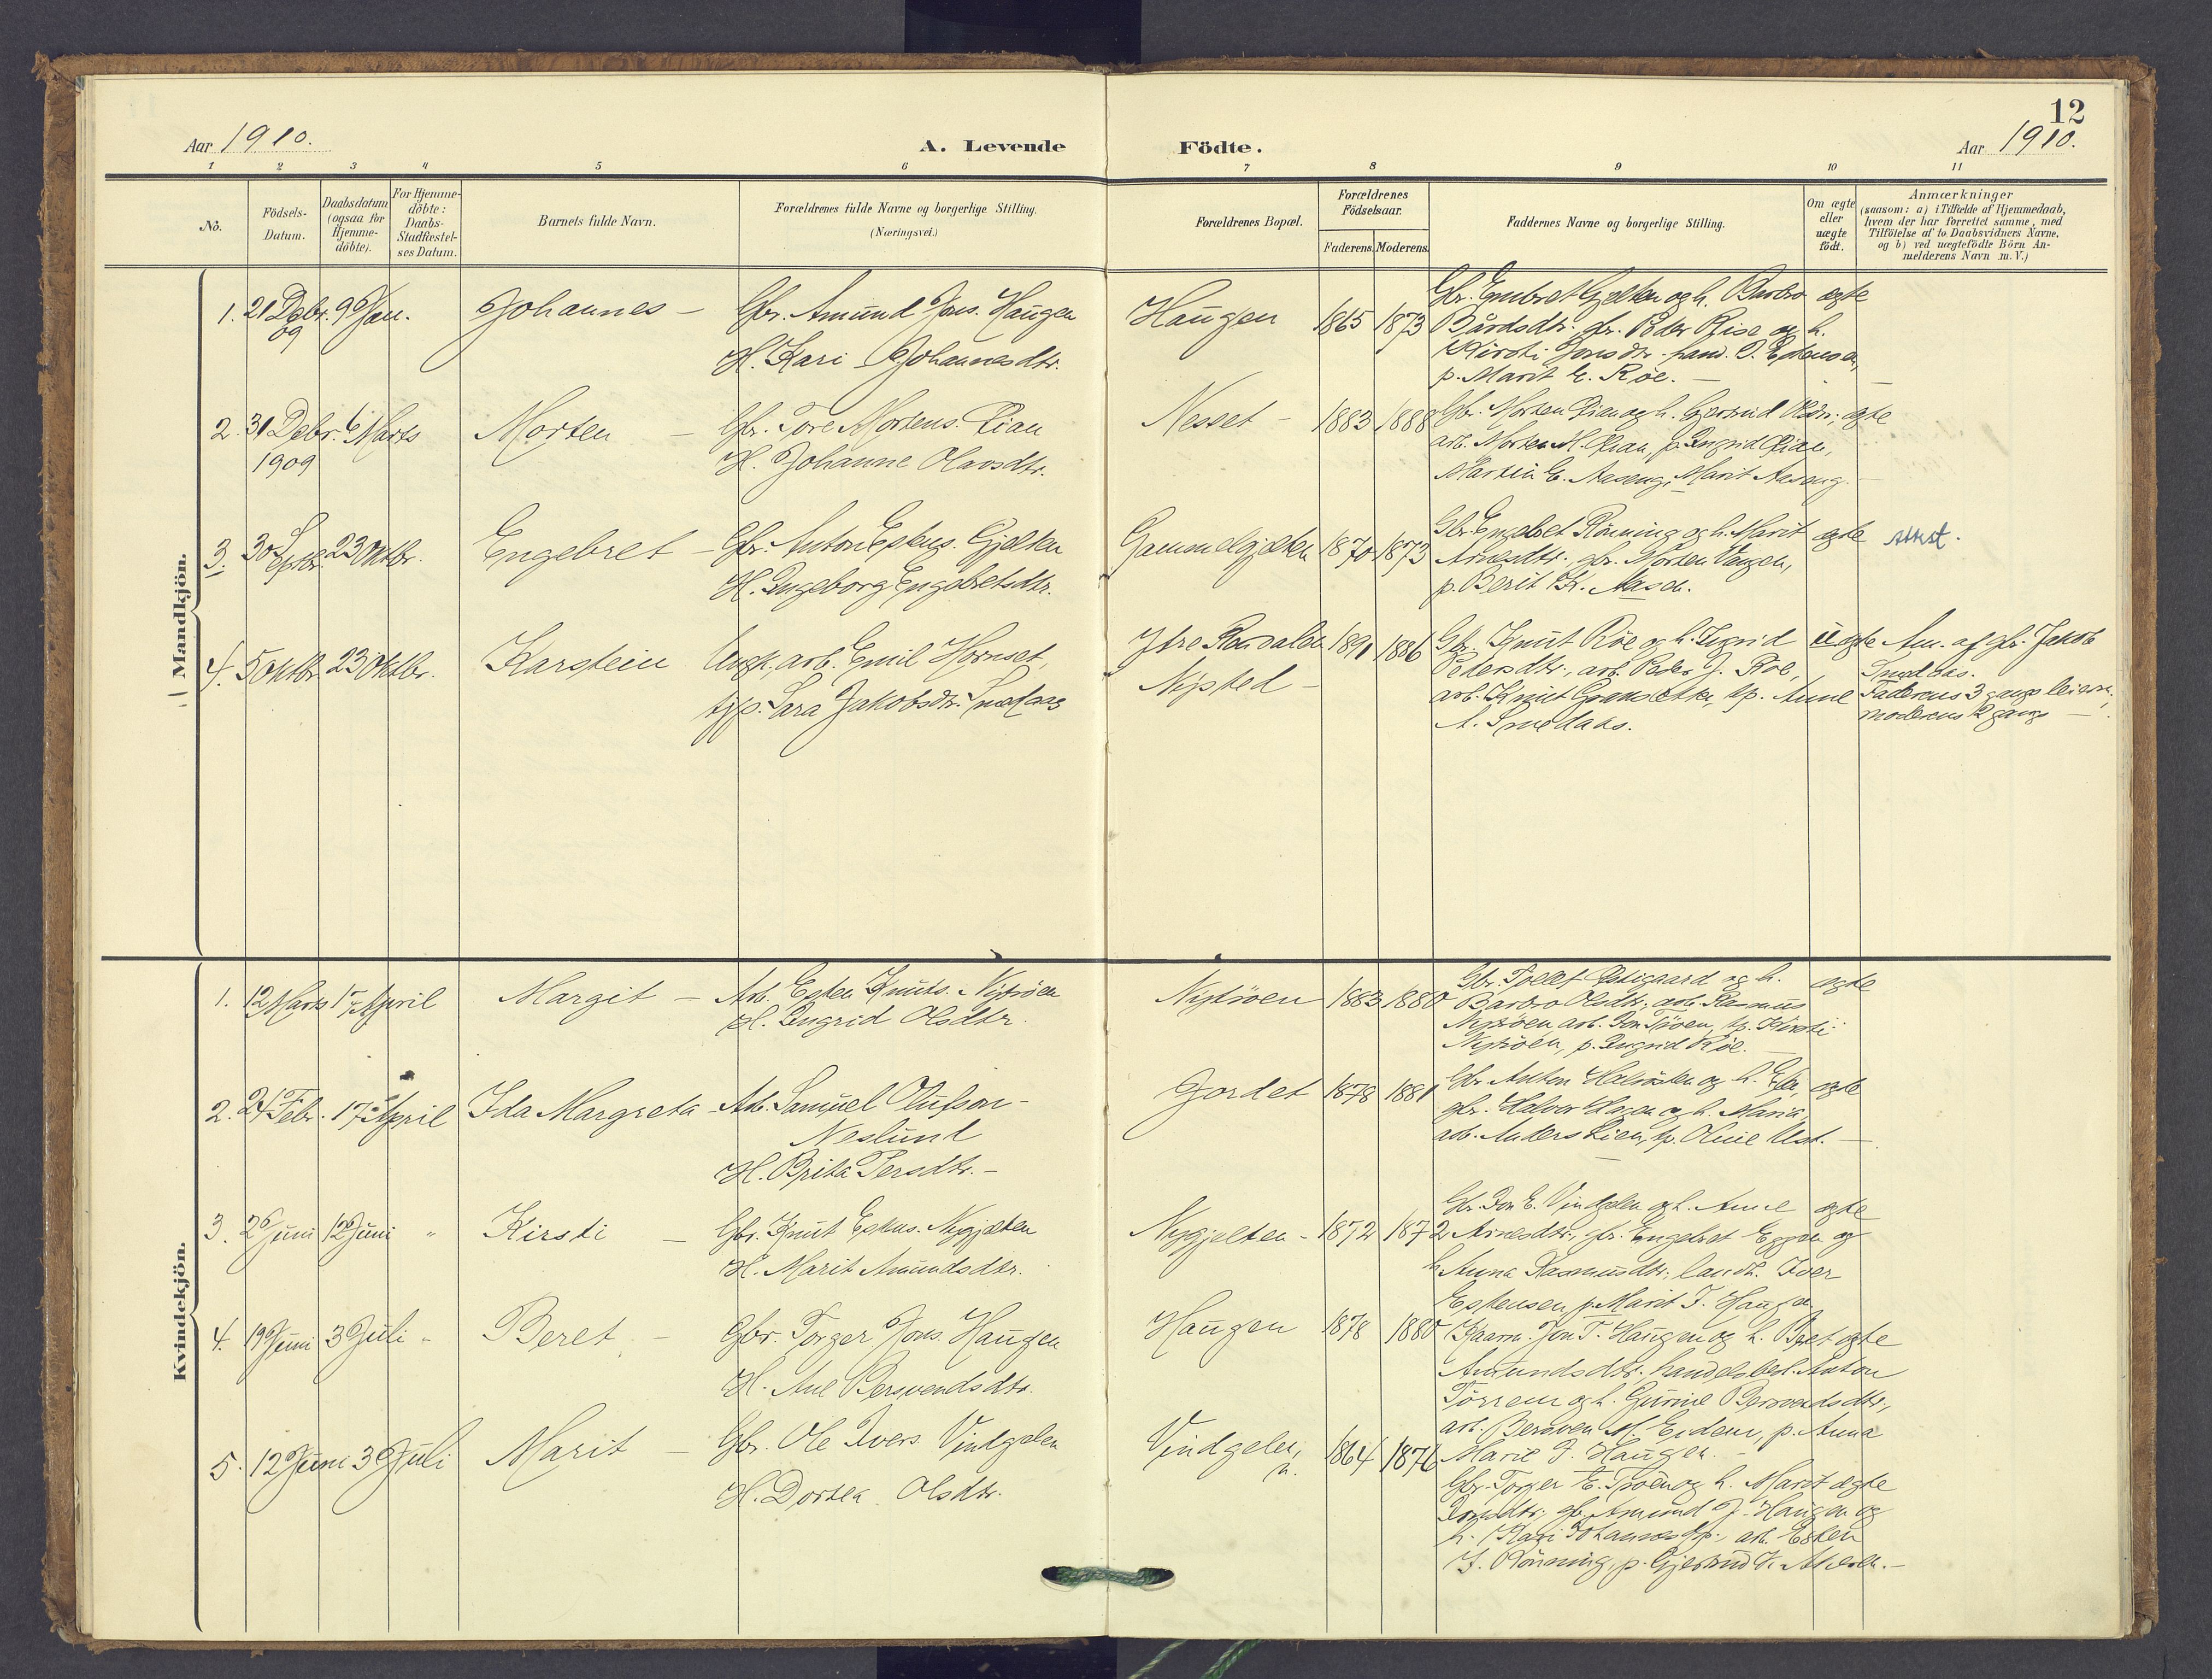 12
Aar 1910.
A. Levende Födte.
Aar 1910.
1 2 3 4 5 6 7 8 9 10 11
No.
Födsels-
Datum.
Daabsdatum
(ogsaa for
Hjemme-
döbte).
For Hjemme-
döbte:
Daabs-
Stadfæstel-
ses Datum.
Barnets fulde Navn.
Forældrenes fulde Navne og borgerlige Stilling.
(Næringsvei.)
Forældrenes Bopæl.
Forældrenes
Födselsaar.
Faderens. Moderens.
Faddernes Navne og borgerlige Stilling.
Om ægte
eller
uægte
födt.
Anmærkninger
(saasom: a) i Tilfælde af Hjemmedaab,
hvem der har forrettet samme, med
Tilföielse af to Daabsvidners Navne,
og b) ved uægtefödte Börn An-
melderens Navn m. V.)
Mandkjön.
1. 21 Debr. 9 Jan. Johannes – Gbr. Amund Jons. Haugen
09
H. Kari Johannesdtr.
Haugen 1865 1873
Gbr. Embret Gjelten og h. Barbro ægte
Bårdsdtr. gbr. Peder Rise og h.
Kirsti Jonsdtr. hand. O. Estensen,
p. Marit E. Röe. –
2. 31 Debr. 6 Marts Morten – Gbr. Tore Mortens. Lian
1909
H. Johanne Olavsdtr.
Nesset – 1883 1888
Gbr. Morten Lian og h. Gjertrud Olsdtr., ægte
arb. Morten M. Lian, p. Ingrid Lian,
Martin E. Aaseng, Marit Aaseng. –
3. 30 Septbr. 23 Oktbr. Engebret – Gbr. Anton Estens. Gjelten
H. Ingeborg Engebretsdtr.
Gammelgjelten 1870 1873
Gbr. Engebret Rönning og h. Marit ægte
Arnesdtr., gbr. Morten Vangen,
p. Berit K. Aasen.
Attest.
4. 5 Oktbr. 23 Oktbr. Karstein Ungk. arb. Emil Hornset,
tjp. Sara Jakobsdtr. Smedaas
Ytre Rendalen 1891 1886
Nysted –
Gbr. Knut Röe og h. Ingrid uægte
Pedersdtr., arb. Peder J. Röe,
arb. Knut Gransletten, tp. Anne
A. Smedaas.
Anm. af gbr. Jakob
Smedaas.
Faderens 3 gangs leierm.,
moderens 2 gangs –
Kvindekjön.
1. 12 Marts 17 April Margit – Arb. Esten Knuts. Nytröen
H. Ingrid Olsdtr.
Nytröen 1883 1880
Gbr. Tollef Østigaard og h. ægte
Barbro Olsdtr., arb. Rasmus
Nytröen, arb. Jon Tröen, tp. Kirsti
Nytröen, p. Ingrid Röe. –
2. 21 Febr. 17 April Ida Margreta – Arb. Samuel Olufson –
Neslund
H. Brita Persdtr. –
Jordet 1878 1881
Gbr. Anton og h. ægte
gbr. Halvor Hagen og h. Maria,
arb. Anders Lien, tp. Oline Ust. –
3. 2 Juni 12 Juni " Kirsti – Gbr. Knut Estens. Nygjelten
H. Marit Amundsdtr.
Nygjelten – 1872 1872
Gbr. Jon E. Vindgelen og h. Anne ægte
Arnesdtr., gbr. Engebret Eggen og
h. Anna Rasmusdtr., landh. Iver
Estensen, p. Marit T. Haugen
4. 19 Juni 3 Juli " Beret – Gbr. Torger Jons. Haugen
H. Ane Bersvendsdtr.
Haugen 1878 1880
Kaarm. Jon T. Haugen og h. Beret ægte
Amundsdtr. handelsbest. Anton
Törrem og h. Gurine Bersvendsdtr.,
arb. Bersven M. Eidem, p. Anna
Marie J. Haugen. –
5. 12 Juni 3 Juli Marit – Gbr. Ole Ivers. Vindgelen
H. Dortea Olsdtr.
Vindgelen, 1864 1876
n.
Gbr. Torger E. Tröen og h. Marit ægte
gbr. Amund J. Haugen og
h. Kari Johannesdtr., arb. Esten
J. Rönning, p. Gjertrud K. –